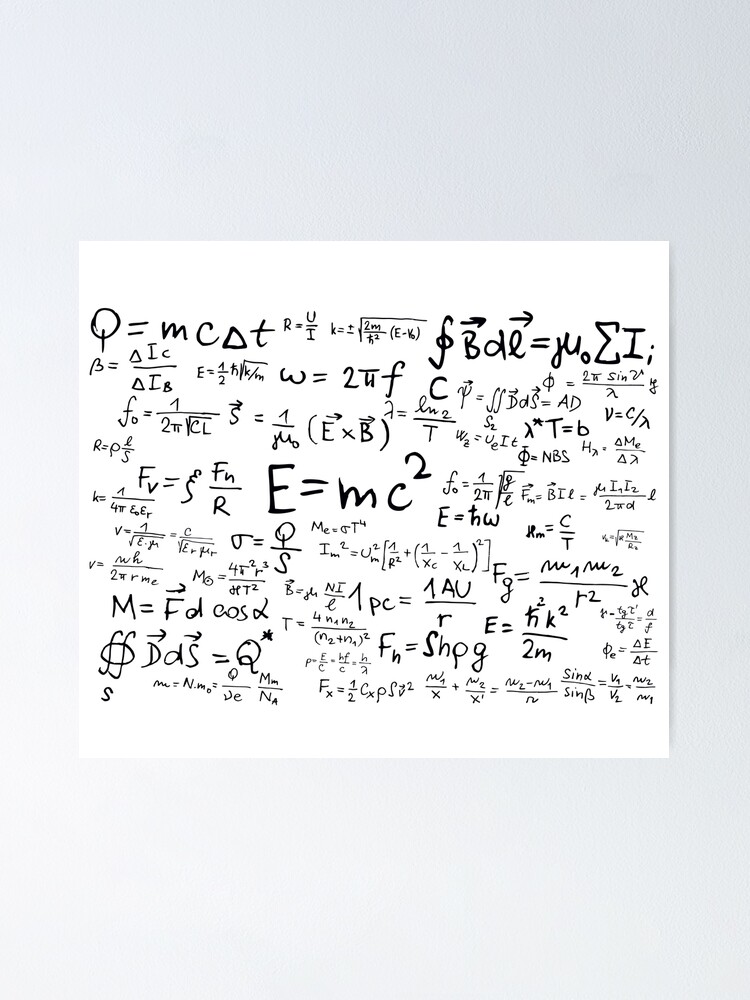 Q = m c Δt
R = U/I
k = ± √(2m/ħ² (E-V₀))
∮ B⃗ dℓ⃗ = μ₀ Σ Iᵢ
C
β = ΔI_C/ΔI_B
E = 1/2 ħ √k/m
ω = 2πf
Ψ⃗ = ∬ D⃗ dS⃗ = AD
S₂
ϕ = 2π sin ϑ/λ y
f₀ = 1/2π√CL
S⃗ = 1/μ₀ (E⃗ × B⃗)
λ = ln 2/T
W₂ = U_e I t
λ*T = b
ν = c/λ
R = ρ ℓ/S
Φ = NBS
H_λ = ΔM_e/Δλ
k = 1/4π ε₀ε_r
F_v = ξ F_n/R
E = mc²
f₀ = 1/2π √g/ℓ
F⃗_m = B⃗ I ℓ = μ I₁ I₂/2πd ℓ
E = ħω
v = 1/√ε·μ = c/√ε_r μ_r
σ = Q/S
M_e = σT⁴
I_m² = U_m² [1/R² + (1/X_C − 1/X_L)²]
ϰ_m = C/T
v = nh/2π r m_e
M_⊙ = 4π² r³/ϰT²
B⃗ = μ NI/ℓ
1pc = 1AU/r
F_g = m₁m₂/r² ϰ
M = F⃗ d cos α
T = 4 n₁n₂/(n₂+n₁)²
E = ħ²k²/2m
∯ D⃗ dS⃗ = Q*
S
p = E/c = hf/c = h/λ
F_h = Shρg
ϕ_e = ΔE/Δt
m = N.m₀ = Q/νe M_m/N_A
F_x = 1/2 C_x ρ S v²
n₁/x + n₂/x' = n₂−n₁/r
sin α/sin β = v₁/v₂ = n₂/n₁